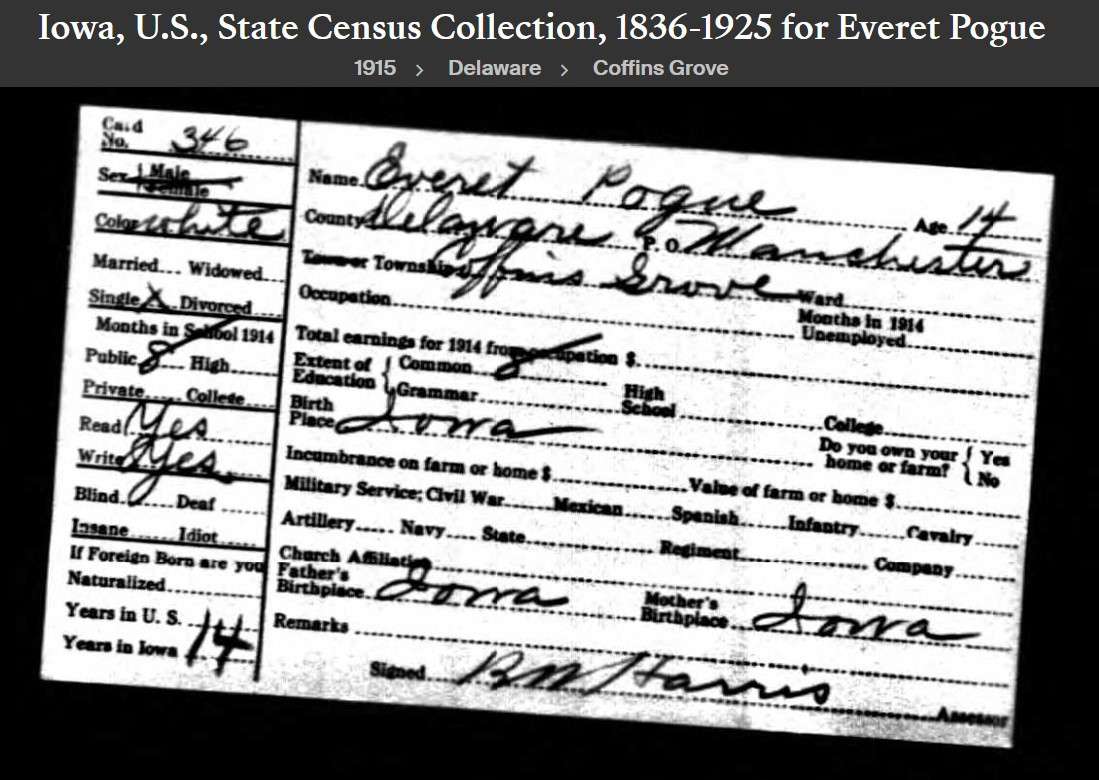 Iowa, U.S., State Census Collection, 1836-1925 for Everet Pogue
1915 > Delaware > Coffins Grove
Card No. 346
Sex Male Female
Color white
Married... Widowed
Single X Divorced
Months in School 1914
Public 8 High
Private College
Read Yes
Write Yes
Blind Deaf
Insane Idiot
If Foreign Born are you
Naturalized
Years in U. S.
Years in Iowa 14
Name Everet Pogue Age 14
County Delaware P. O. Manchester
Town or Township Coffins Grove Ward
Occupation Months in 1914 Unemployed
Total earnings for 1914 from occupation $
Extent of Education { Common 8 Grammar High School College
Birth Place Iowa Do you own your home or farm? { Yes No
Incumbrance on farm or home $ Value of farm or home $
Military Service; Civil War Mexican Spanish Infantry Cavalry
Artillery Navy State Regiment Company
Church Affiliation
Father's Birthplace Iowa Mother's Birthplace Iowa
Remarks
Signed Harris Assessor